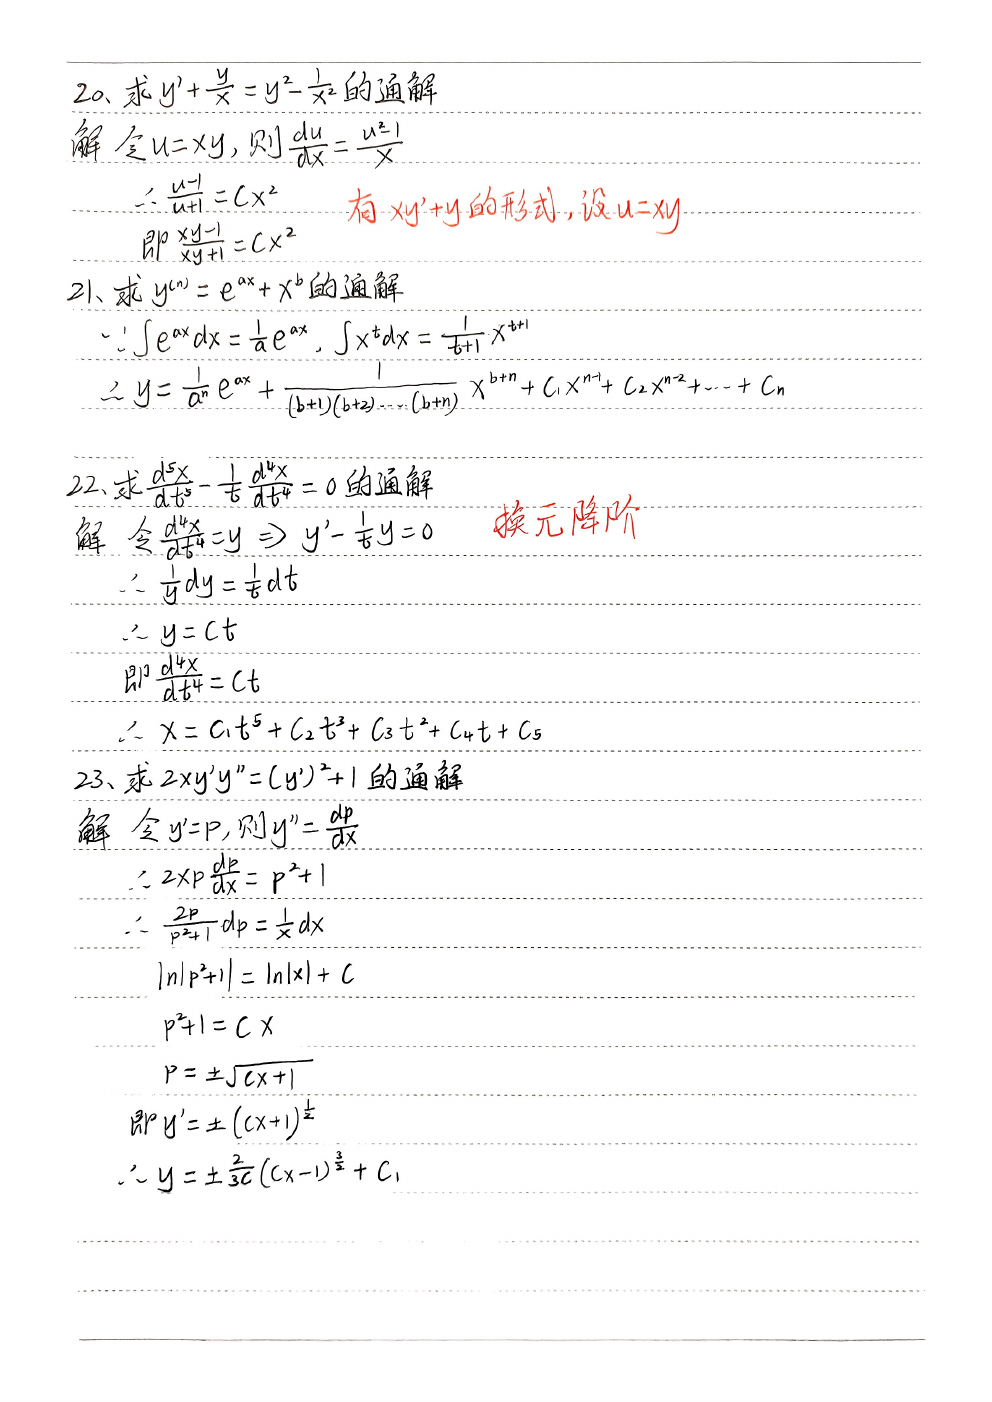 20、求 y' + y/x = y² - 1/x² 的通解
解 令 u=xy, 则 du/dx = (u²-1)/x
∴ (u-1)/(u+1) = Cx²
有 xy'+y 的形式, 设 u=xy
即 (xy-1)/(xy+1) = Cx²
21、求 y⁽ⁿ⁾ = e^(ax) + x^b 的通解
∵ ∫e^(ax)dx = (1/a)e^(ax), ∫x^t dx = (1/(t+1)) x^(t+1)
∴ y = (1/aⁿ) e^(ax) + 1/((b+1)(b+2)⋯(b+n)) x^(b+n) + C₁x^(n-1) + C₂x^(n-2) + ⋯ + Cn
22、求 d⁵x/dt⁵ - (1/t) d⁴x/dt⁴ = 0 的通解
解 令 d⁴x/dt⁴ = y ⇒ y' - (1/t)y = 0
换元降阶
∴ (1/y)dy = (1/t)dt
∴ y = Ct
即 d⁴x/dt⁴ = Ct
∴ x = C₁t⁵ + C₂t³ + C₃t² + C₄t + C₅
23、求 2xy'y'' = (y')² + 1 的通解
解 令 y'=p, 则 y'' = dp/dx
∴ 2xp dp/dx = p²+1
∴ 2p/(p²+1) dp = (1/x)dx
ln|p²+1| = ln|x| + C
p²+1 = CX
p = ±√(Cx+1)
即 y' = ±(Cx+1)^(1/2)
∴ y = ± 2/(3C) (Cx-1)^(3/2) + C₁